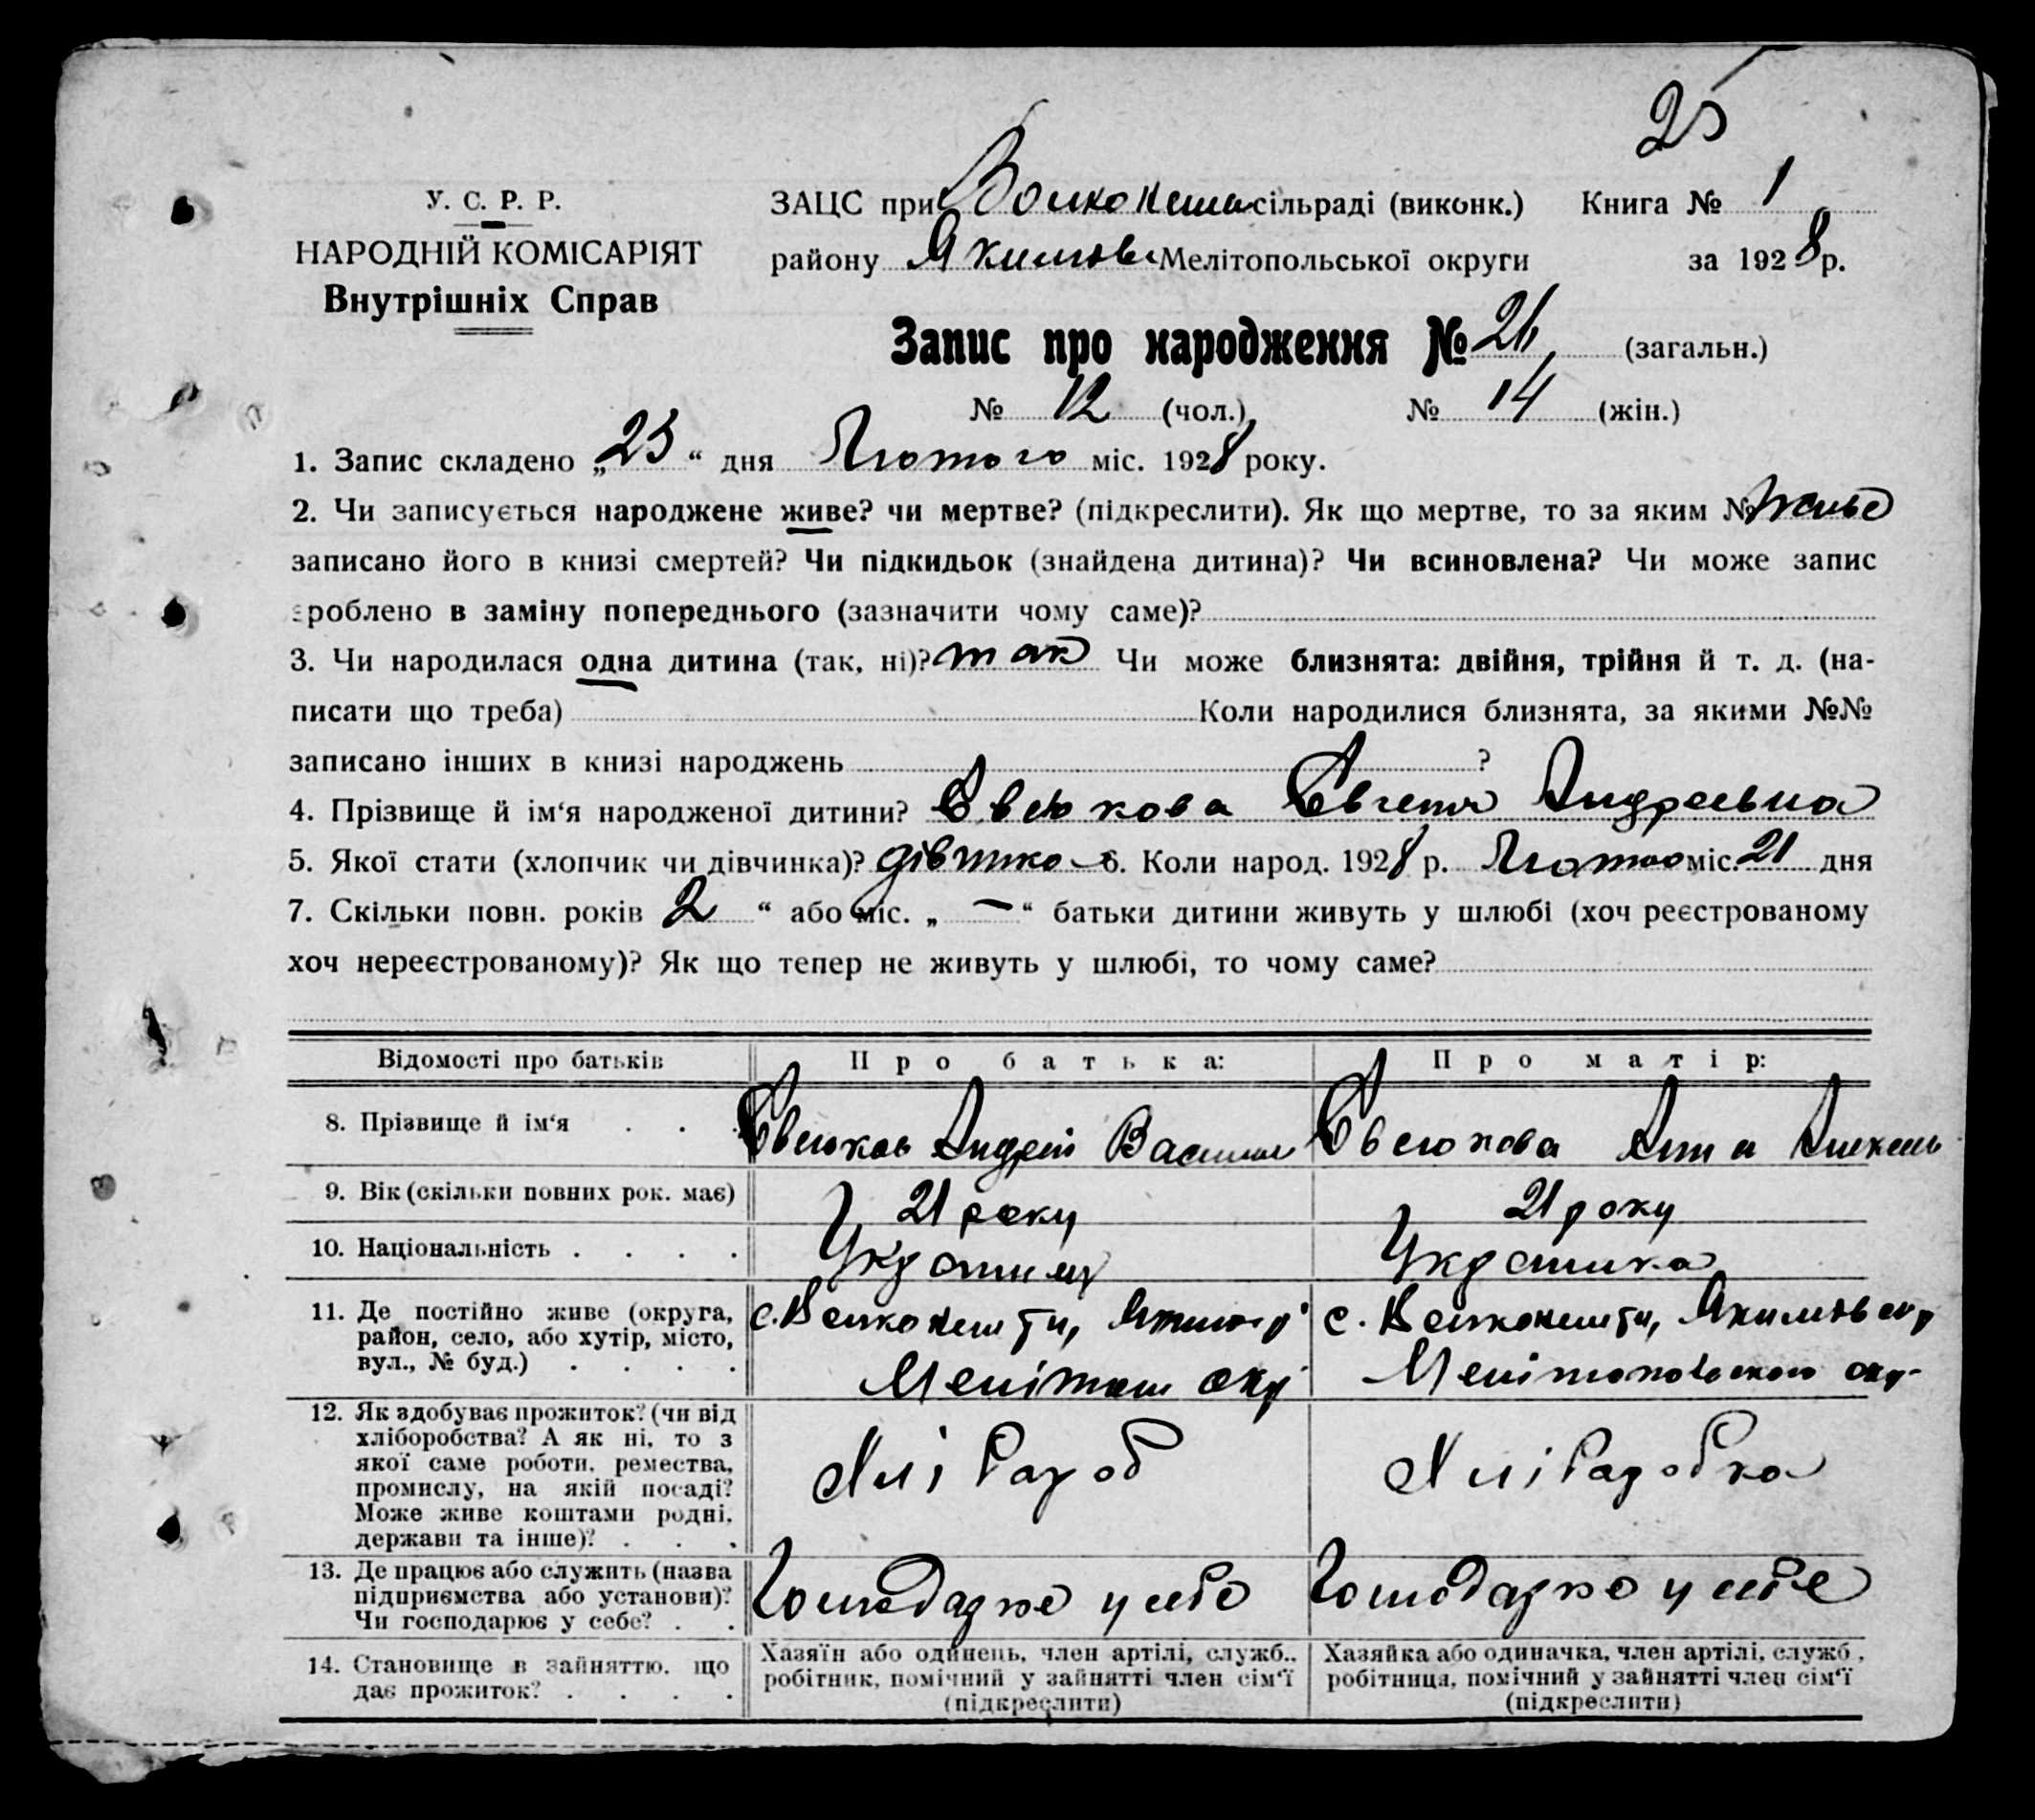 25
У. С. Р. Р.
НАРОДНІЙ КОМІСАРІЯТ
Внутрішніх Справ
ЗАЦС при сільраді (виконк.) Книга № 1
району Якимівс Мелітопольської округи за 1928 р.
Запис про народження № 26 (загальн.)
№ 12 (чол.) № 14 (жін.)
1. Запис складено „23“ дня Лютого міс. 1928 року.
2. Чи записується народжене живе? чи мертве? (підкреслити). Як що мертве, то за яким № живе
записано його в книзі смертей? Чи підкидьок (знайдена дитина)? Чи всиновлена? Чи може запис
зроблено в заміну попереднього (зазначити чому саме)?
3. Чи народилася одна дитина (так, ні)? так Чи може близнята: двійня, трійня й т. д. (на-
писати що треба) Коли народилися близнята, за якими №№
записано інших в книзі народжень ?
4. Прізвище й ім‘я народженої дитини? Євсюкова Євгенія Андреевна
5. Якої статі (хлопчик чи дівчинка)? 6. Коли народ. 1928 р. міс. 21 дня
7. Скільки повн. років 2 “ або міс. „ — “ батьки дитини живуть у шлюбі (хоч реєстрованому
хоч нереєстрованому)? Як що тепер не живуть у шлюбі, то чому саме?
Відомості про батьків Про батька: Про матір:
8. Прізвище й ім‘я . . . Євсюков Андрей Євсюкова Анна
9. Вік (скільки повних рок. має) 21 року 21 року
10. Національність . . . . Українка
11. Де постійно живе (округа, район, село, або хутір, місто, вул., № буд.) . . . . с. с.
12. Як здобуває прожиток? (чи від хліборобства? А як ні, то з якої саме роботи, ремества, промислу, на якій посаді? Може живе коштами родні, держави та інше)? . . . Хлібароб Хлібаробка
13. Де працює або служить (назва підприємства або установи)? Чи господарює у себе? . . у себе у себе
14. Становище в зайняттю, що дає прожиток? . . . . Хазяїн або одинець, член артілі, служб., робітник, помічний у зайнятті член сім‘ї (підкреслити) Хазяйка або одиначка, член артілі, служб., робітниця, помічний у зайнятті член сім‘ї (підкреслити)